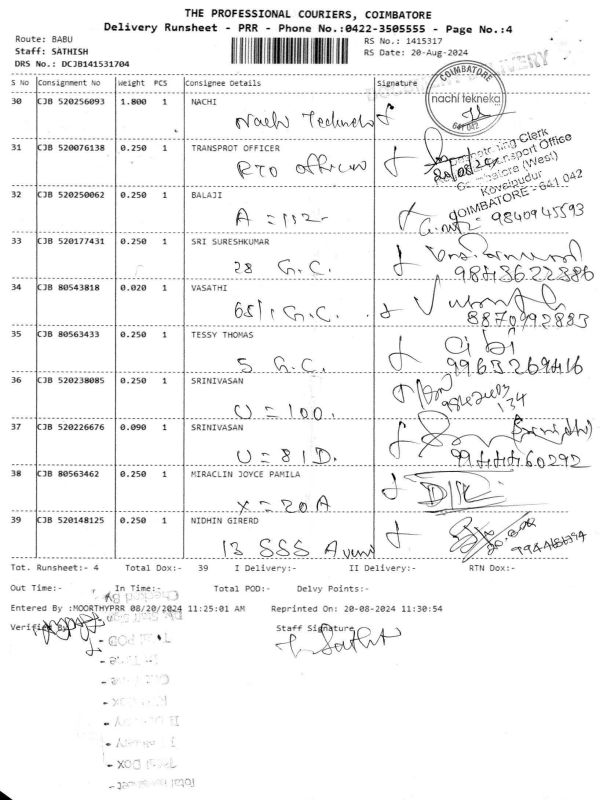 THE PROFESSIONAL COURIERS, COIMBATORE
Delivery Runsheet - PRR - Phone No.:0422-3505555 - Page No.:4
Route: BABU RS No.: 1415317
Staff: SATHISH RS Date: 20-Aug-2024
DRS No.: DCJB141531704
S No Consignment No Weight PCS Consignee Details Signature
COIMBATORE
nachi tekneka
641 042
30 CJB 520256093 1.800 1 NACHI
31 CJB 520076138 0.250 1 TRANSPROT OFFICER
RTO officer
Clerk
Transport Office
(West)
Kovaipudur
COIMBATORE - 641 042
32 CJB 520250062 0.250 1 BALAJI
A = 112 9840945593
33 CJB 520177431 0.250 1 SRI SURESHKUMAR
28 G.C.
34 CJB 80543818 0.020 1 VASATHI
65/1 G.C.
35 CJB 80563433 0.250 1 TESSY THOMAS
5 G.C.
36 CJB 520238085 0.250 1 SRINIVASAN
U = 100.
37 CJB 520226676 0.090 1 SRINIVASAN
U = 81 D.
38 CJB 80563462 0.250 1 MIRACLIN JOYCE PAMILA
X = 20 A
39 CJB 520148125 0.250 1 NIDHIN GIRERD
13 SSS Avenu
Tot. Runsheet:- 4 Total Dox:- 39 I Delivery:- II Delivery:- RTN Dox:-
Out Time:- In Time:- Total POD:- Delvy Points:-
Entered By :MOORTHYPRR 08/20/2024 11:25:01 AM Reprinted On: 20-08-2024 11:30:54
Verified By Staff Signature
Sathish